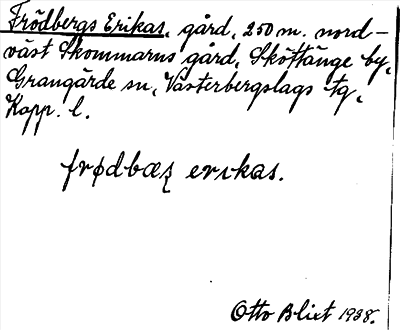 Frödbergs Erikas, gård, 250 m. nord-
väst Skommarns gård, Sköttänge by,
Grangärde sn, Västerbergslags tg,
Kopp. l.
frødbæʐ erıkas.
Otto Blixt 1938.